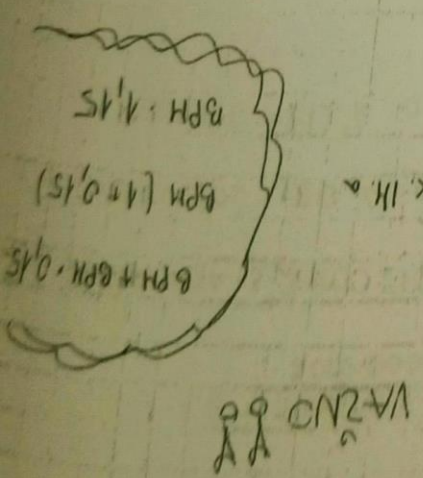 VAŽNO !!
BPM + BPM · 0,15
BPM (1+0,15)
BPM · 1,15